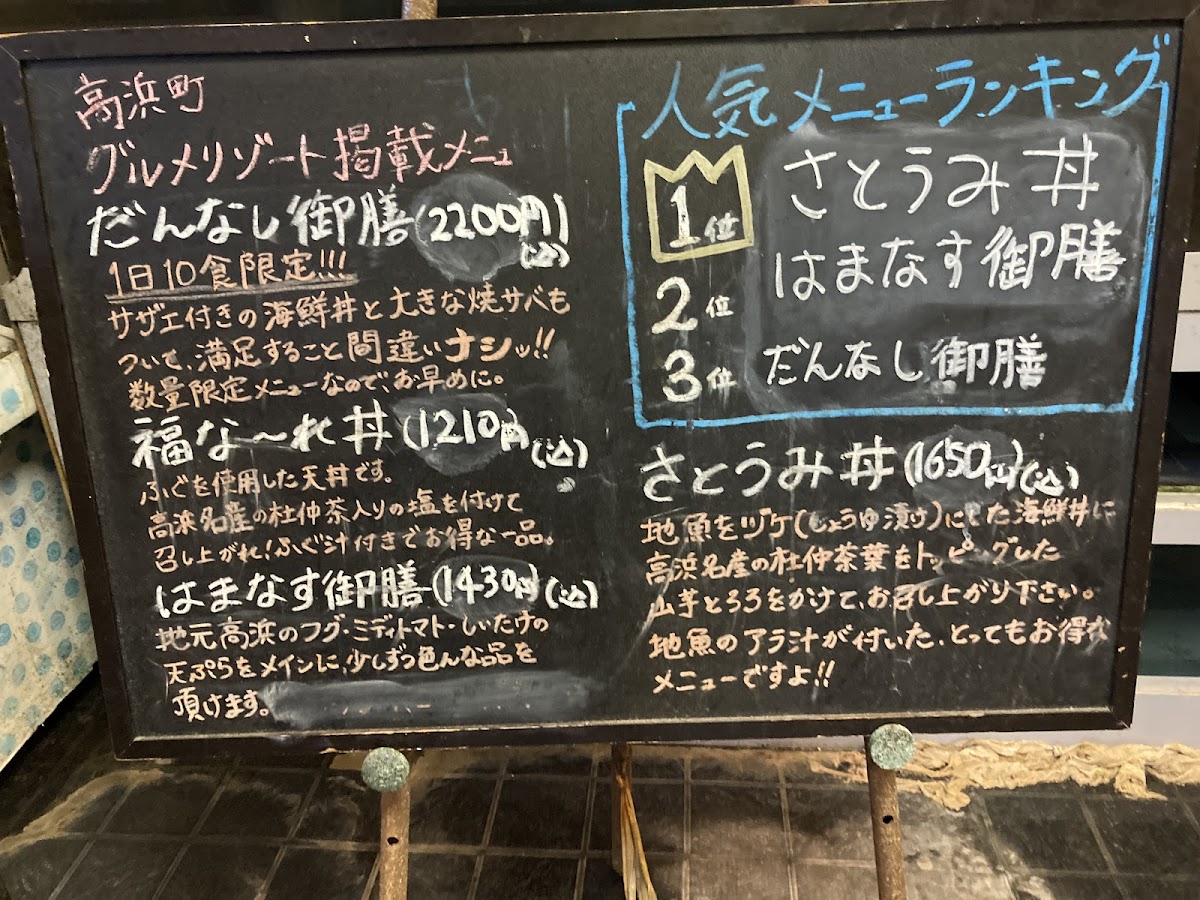 高浜町
グルメリゾート掲載メニュ
だんなし御膳(2200円)
(込)
1日10食限定!!!
サザエ付きの海鮮丼と大きな焼サバも
ついて、満足すること間違いナシッ!!
数量限定メニューなので、お早めに。
福な〜れ丼(1210円)(込)
ふぐを使用した天丼です。
高浜名産の杜仲茶入りの塩を付けて
召し上がれ!ふぐ汁付きでお得な一品。
はまなす御膳(1430円)(込)
地元高浜のフグ・ミディトマト・しいたけの
天ぷらをメインに、少しずつ色んな品を
頂けます。
人気メニューランキング
1位 さとうみ丼
2位 はまなす御膳
3位 だんなし御膳
さとうみ丼(1650円)(込)
地魚をヅケ(しょうゆ漬け)にした海鮮丼に
高浜名産の杜仲茶葉をトッピングした
山芋とろろをかけて、お召し上がり下さい。
地魚のアラ汁が付いた、とってもお得な
メニューですよ!!